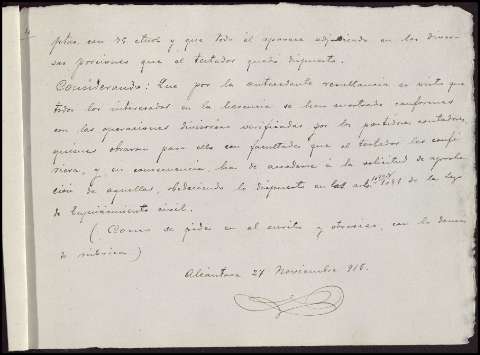 ptas con 75 ctmos y que todo él aparece adjudicado en las diver-
sas porciones que el testador quedó dispuesto.
Considerando: Que por la antecedente resultancia se visto que
todos los interesados en la herencia se han mostrado conformes
con las operaciones divisorias verificadas por los partidores contadores,
quienes obraron para ello con facultades que el testador les confi-
riera, y, en consecuencia, ha de accederse á la solicitud de aproba-
ción de aquellas, obedeciendo lo dispuesto en los arts. 1081 de la ley
de Enjuiciamiento civil.
(Como se pide en el escrito y otrosíes, con lo demas
de rúbrica)
Alcántara 27 Noviembre 916.